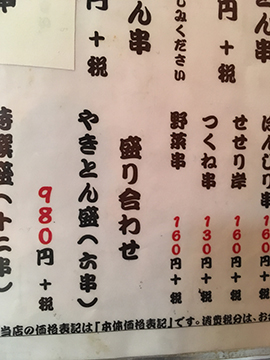 ん串
円＋税
しみください
ん串
円＋税
ぼんじり串
160円＋税
せせり岸
160円＋税
つくね串
130円＋税
野菜串
160円＋税
盛り合わせ
やきとん盛（六串）
980円＋税
盛（十二串）
当店の価格表記は「本体価格表記」です。消費税分は、お